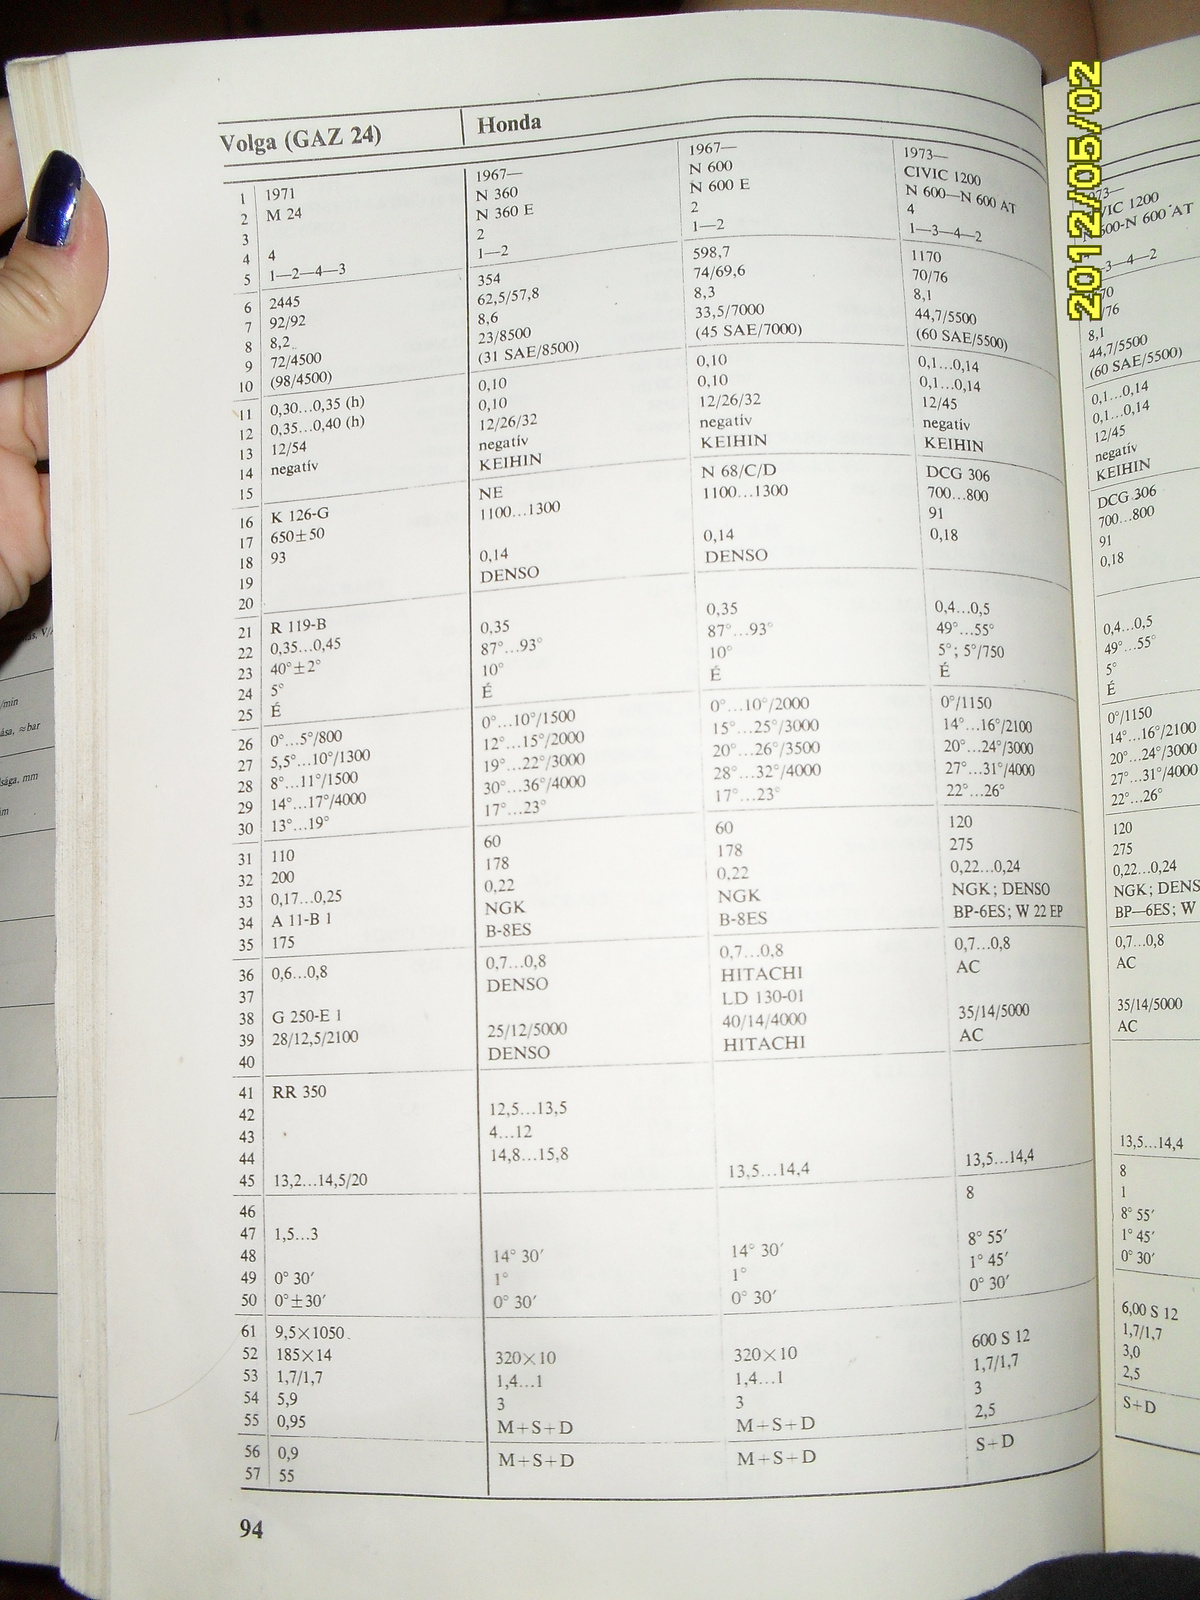 Volga (GAZ 24) Honda
1967— 1967— 1973—
1 1971 N 360 N 600 CIVIC 1200
2 M 24 N 360 E N 600 E N 600—N 600 AT
3 2 2 4
4 4 1—2 1—2 1—3—4—2
5 1—2—4—3
6 2445 354 598,7 1170
7 92/92 62,5/57,8 74/69,6 70/76
8 8,2 8,6 8,3 8,1
9 72/4500 23/8500 33,5/7000 44,7/5500
10 (98/4500) (31 SAE/8500) (45 SAE/7000) (60 SAE/5500)
11 0,30...0,35 (h) 0,10 0,10 0,1...0,14
12 0,35...0,40 (h) 0,10 0,10 0,1...0,14
13 12/54 12/26/32 12/26/32 12/45
14 negatív negatív negatív negatív
15 KEIHIN KEIHIN KEIHIN
16 K 126-G NE N 68/C/D DCG 306
17 650±50 1100...1300 1100...1300 700...800
18 93 91
19 0,14 0,14 0,18
20 DENSO DENSO
21 R 119-B
22 0,35...0,45 0,35 0,35 0,4...0,5
23 40°±2° 87°...93° 87°...93° 49°...55°
24 5° 10° 10° 5°; 5°/750
25 É É É É
26 0°...5°/800 0°...10°/1500 0°...10°/2000 0°/1150
27 5,5°...10°/1300 12°...15°/2000 15°...25°/3000 14°...16°/2100
28 8°...11°/1500 19°...22°/3000 20°...26°/3500 20°...24°/3000
29 14°...17°/4000 30°...36°/4000 28°...32°/4000 27°...31°/4000
30 13°...19° 17°...23° 17°...23° 22°...26°
31 110 60 60 120
32 200 178 178 275
33 0,17...0,25 0,22 0,22 0,22...0,24
34 A 11-B 1 NGK NGK NGK; DENSO
35 175 B-8ES B-8ES BP-6ES; W 22 EP
36 0,6...0,8 0,7...0,8 0,7...0,8 0,7...0,8
37 DENSO HITACHI AC
38 G 250-E 1 LD 130-01
39 28/12,5/2100 25/12/5000 40/14/4000 35/14/5000
40 DENSO HITACHI AC
41 RR 350
42 12,5...13,5
43 4...12
44 14,8...15,8
45 13,2...14,5/20 13,5...14,4 13,5...14,4
46 8
47 1,5...3
48 14° 30′ 14° 30′ 8° 55′
49 0° 30′ 1° 1° 1° 45′
50 0°±30′ 0° 30′ 0° 30′ 0° 30′
61 9,5×1050
52 185×14 320×10 320×10 600 S 12
53 1,7/1,7 1,4...1 1,4...1 1,7/1,7
54 5,9 3 3 3
55 0,95 M+S+D M+S+D 2,5
56 0,9 M+S+D M+S+D S+D
57 55
94
2012/05/02
VIC 1200
3—4—2
8,1
44,7/5500
(60 SAE/5500)
0,1...0,14
0,1...0,14
12/45
negatív
KEIHIN
DCG 306
700...800
91
0,18
0,4...0,5
49°...55°
5°
É
0°/1150
14°...16°/2100
20°...24°/3000
27°...31°/4000
22°...26°
120
275
0,22...0,24
NGK; DENS
BP—6ES; W
0,7...0,8
AC
35/14/5000
AC
13,5...14,4
8
1
8° 55′
1° 45′
0° 30′
6,00 S 12
1,7/1,7
3,0
2,5
S+D
/min
bar
mm